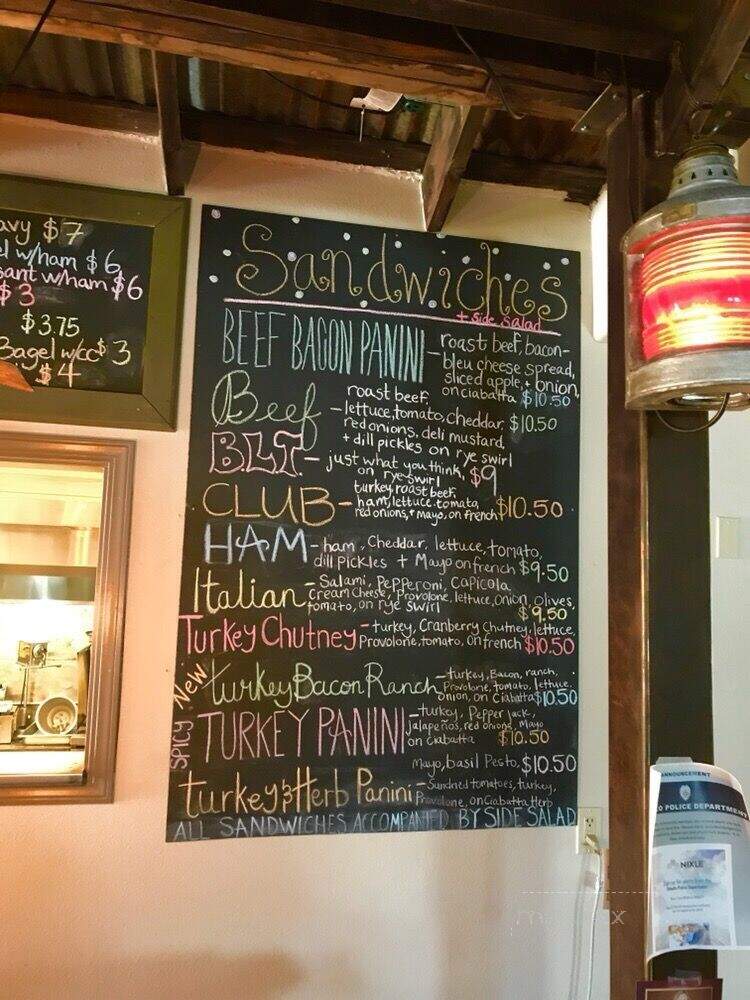 avy $7
el w/ham $6
sant w/ham $6
$3
$3.75
Bagel w/cc $3
$4
Sandwiches
+ side salad
BEEF BACON PANINI - roast beef, bacon-
bleu cheese spread,
sliced apple, + onion,
on ciabatta $10.50
Beef - roast beef,
lettuce, tomato, cheddar, $10.50
red onions, deli mustard,
+ dill pickles on rye swirl
BLT - just what you think, $9
on rye swirl
CLUB - turkey, roast beef,
ham, lettuce, tomato,
red onions, + mayo, on french $10.50
HAM - ham, Cheddar, lettuce, tomato,
dill pickles + Mayo on french $9.50
Italian - Salami, Pepperoni, Capicola,
Cream Cheese, Provolone, lettuce, onion, olives,
tomato, on rye swirl $9.50
Turkey Chutney - turkey, Cranberry Chutney, lettuce,
Provolone, tomato, on french $10.50
New turkey Bacon Ranch - turkey, Bacon, ranch,
Provolone, tomato, lettuce,
onion, on Ciabatta $10.50
SPICY TURKEY PANINI - turkey, Pepper jack,
jalapeños, red onions, Mayo
on Ciabatta $10.50
Mayo, basil Pesto, $10.50
turkey & Herb Panini - Sundried tomatoes, turkey,
Provolone, on Ciabatta Herb
ALL SANDWICHES ACCOMPANIED BY SIDE SALAD
ANNOUNCEMENT
O POLICE DEPARTMENT
NIXLE